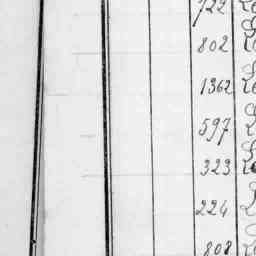 722
802
1362
597
323
224
808